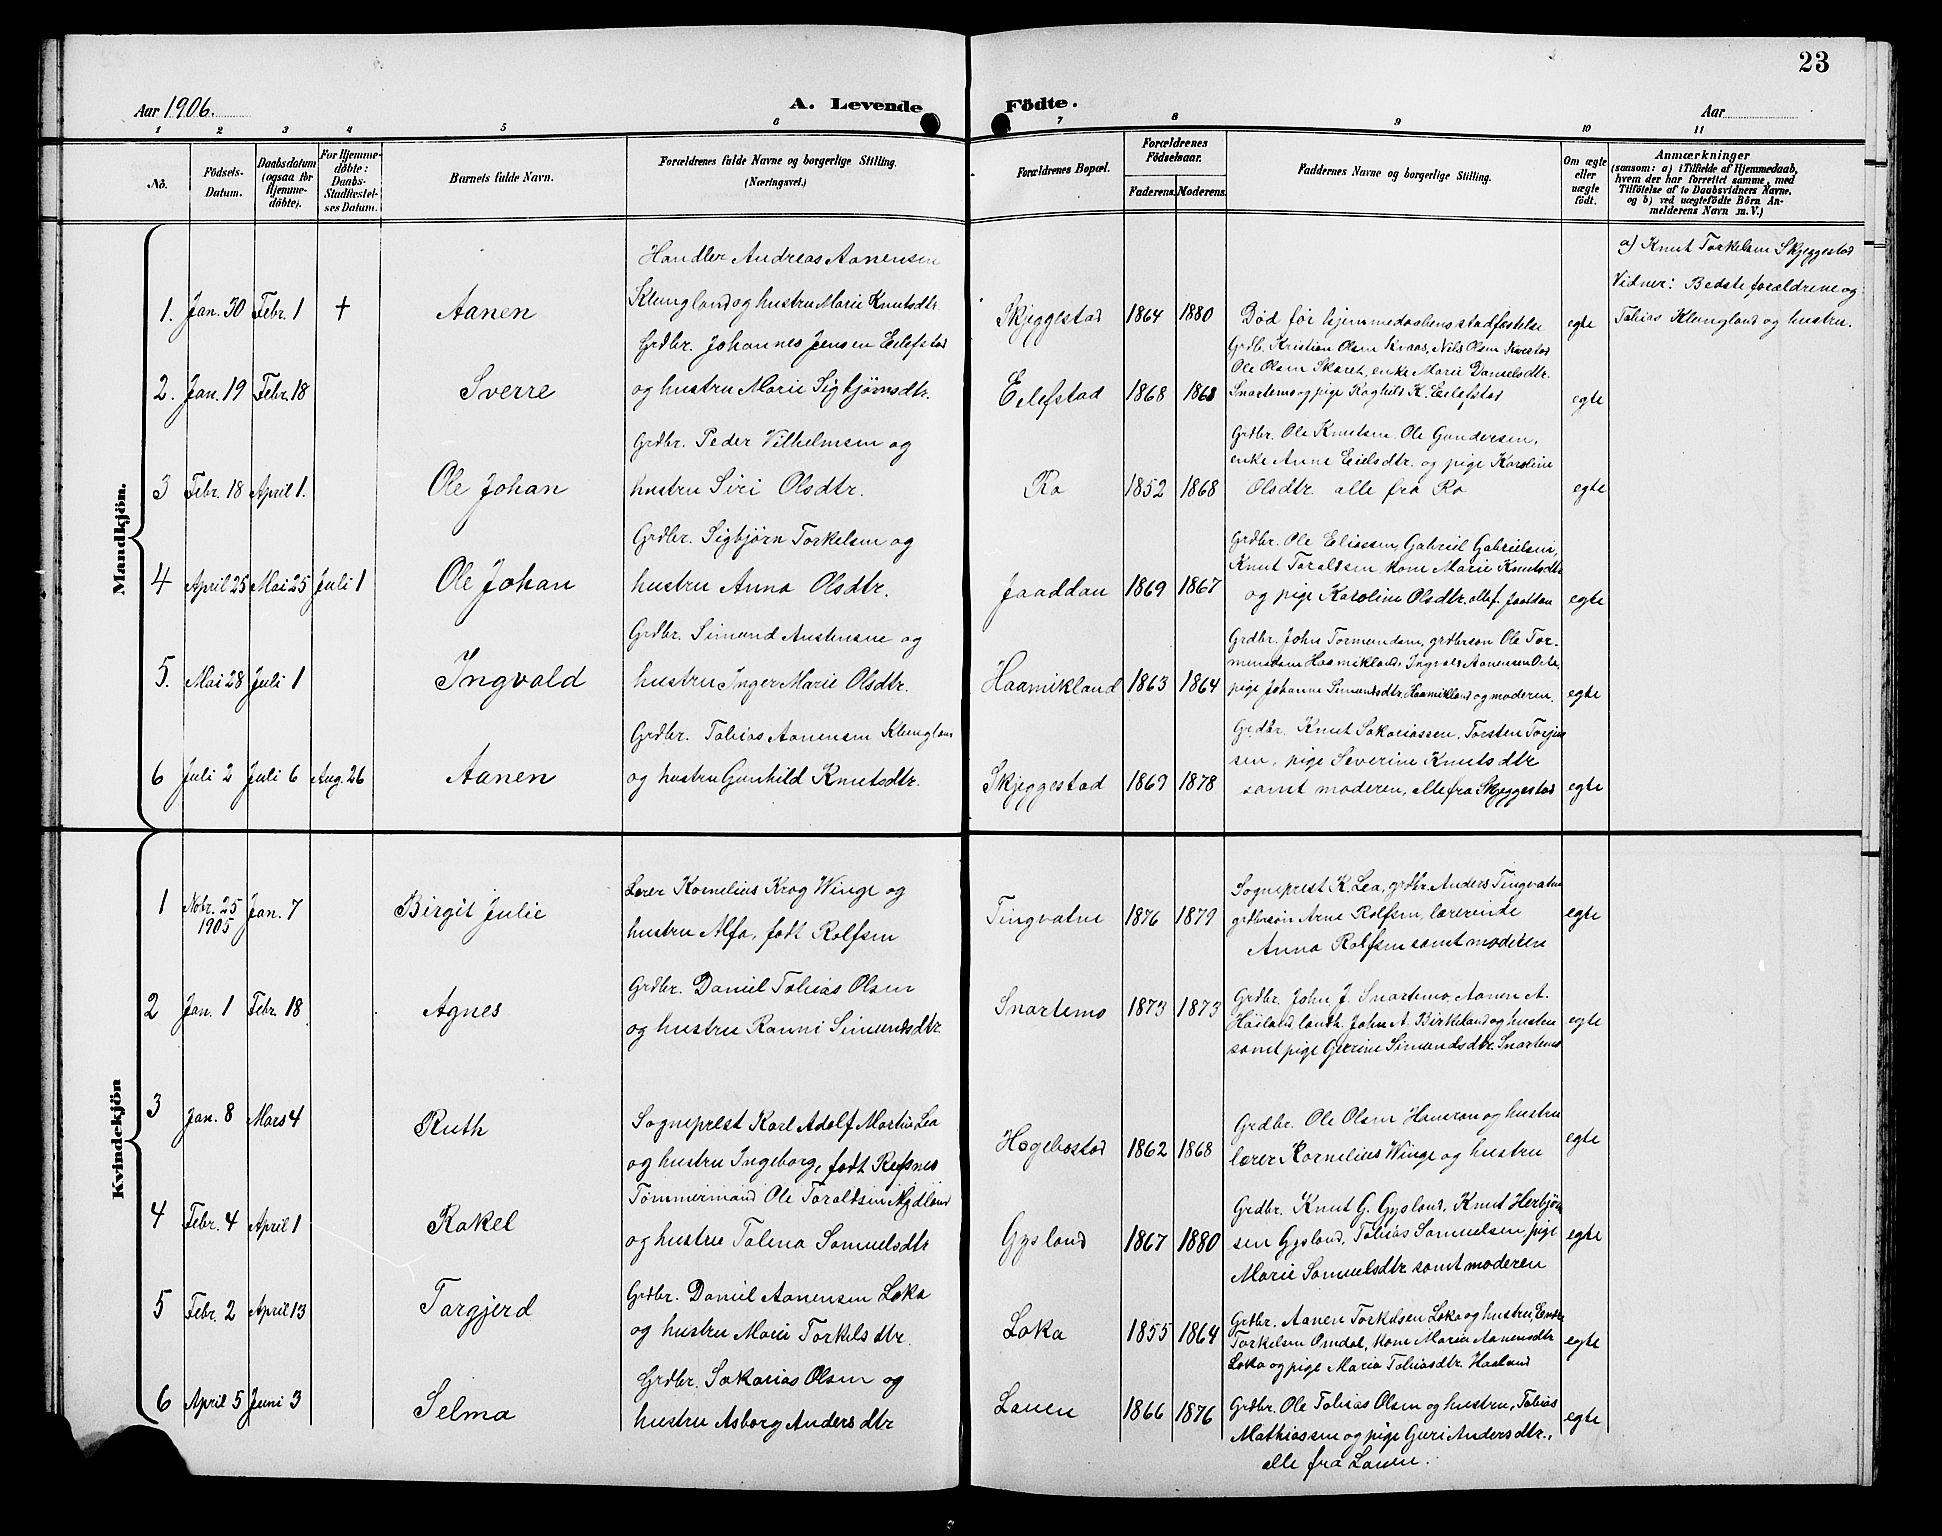 23
Aar 1906.
A. Levende Födte.
Aar
1 2 3 4 5 6 7 8 9 10 11
No.
Födsels-Datum.
Daabsdatum (ogsaa for Hjemme-döbte).
For Hjemme-döbte: Daabs-Stadfæstel-ses Datum.
Barnets fulde Navn.
Forældrenes fulde Navne og borgerlige Stilling. (Næringsvei.)
Forældrenes Bopæl.
Forældrenes Födselsaar.
Faderens. Moderens.
Faddernes Navne og borgerlige Stilling.
Om ægte eller uægte födt.
Anmærkninger
(saasom: a) i Tilfælde af Hjemmedaab,
hvem der har forrettet samme, med
Tilföielse af to Daabsvidners Navne.
og b) ved uægtefödte Börn An-
melderens Navn m. V.)
Mandkjön.
1. Jan. 30 Febr. 1 † Aanen
Handler Andreas Aanensen
Klungland og hustru Marie Knutsdtr.
Skjeggestad 1864 1880
Död før hjemmedaabens stadfæstelse
egte
a) Knut Torkelsen Skjeggestad
Vidner: Bedsteforældrene og
Tobias Klungland og hustru.
2. Jan. 19 Febr. 18 Sverre
Grdbr. Johannes Jensen Eilefstad
og hustru Marie Sigbjørnsdtr.
Eilefstad 1868 1868
Grdb. Kristian Olsen Kraas, Nils Olsen Kvestad
Ole Olsen Skaret, enke Marie Danielsdtr.
Snartemo og pige Raghild K. Eilefstad
egte
3 Febr. 18 April 1. Ole Johan
Grdbr. Peder Vilhelmsen og
hustru Siri Olsdtr.
Ro 1852 1868
Grdbr. Ole Knutsen, Ole Gundersen,
enke Anne Eielsdtr. og pige Karoline
Olsdtr. alle fra Ro
egte
4 April 25 Mai 25 Juli 1 Ole Johan
Grdbr. Sigbjørn Torkelsen og
hustru Anna Olsdtr.
Jaaddan 1869 1867
Grdbr. Ole Eliassen, Gabriel Gabrielsen,
Knut Toraldsen, kone Marie Knutsdtr
og pige Karoline Olsdtr. alle f. Jaaddan
egte
5. Mai 28 Juli 1 Ingvald
Grdbr. Simund Austensen og
hustru Inger Marie Olsdtr.
Haamikland 1863 1864
Grdbr. John Tormundsen, grdbrsøn Ole Tor-
mundsen Haamikland, Ingvald Aanensen
pige Johanne Simundsdtr. Haamikland og moderen.
egte
6 Juli 2 Juli 6 Aug. 26 Aanen
Grdbr. Tobias Aanensen Klungland
og hustru Gunhild Knutsdtr.
Skjeggestad 1869 1878
Grdbr. Knut Sakariassen, Torsten Torjus
sen, pige Severine Knutsdtr
samt moderen, alle fra Skjeggestad
egte
Kvindekjön
1 Nobr. 25 1905 Jan. 7 Birgit Julie
Lærer Kornelius Krog Winge og
hustru Alfa, født Rolfsen
Tingvatne 1876 1879
Sogneprest K. Lea, grdbr. Anders Tingvatne
grdbrsøn Arne Rolfsen, lærerinde
Anna Rolfsen samt moderen
egte
2 Jan. 1 Febr. 18 Agnes
Grdbr. Daniel Tobias Olsen
og hustru Ranni Simundsdtr.
Snartemo 1873 1873
Grdbr. John J. Snartemo, Aanen A.
Haaland landh. John A. Birkeland og hustru
samt pige Gurine Simundsdtr. Snartemo
egte
3 Jan. 8 Mars 4 Ruth
Sogneprest Karl Adolf Martin Lea
og hustru Ingeborg, født Refsnes
Høgebostad 1862 1868
Grdbr. Ole Olsen Haueran og hustru
lærer Kornelius Winge og hustru
egte
4 Febr. 4 April 1 Rakel
Tømmermand Ole Toraldsen Mydland
og hustru Talina Samuelsdtr
Gysland 1867 1880
Grdbr. Knut G. Gysland, Knut Herbjørn
sen Gysland, Tobias Samuelsen, pige
Marie Samuelsdtr samt moderen
egte
5 Febr. 2 April 13 Targjerd
Grdbr. Daniel Aanensen Loka
og hustru Marie Torkelsdtr.
Loka 1855 1864
Grdbr. Aanen Torkelsen Loka og hustru,
Torkelsen Omdal, kone Maria Aanensdtr
Loka og pige Maria Tobiasdtr. Haaland
egte
6 April 5 Juni 3 Selma
Grdbr. Sakarias Olsen og
hustru Asborg Andersdtr
Lauen 1866 1876
Grdbr. Ole Tobias Olsen og hustru, Tobias
Mathiassen og pige Guri Andersdtr.,
alle fra Lauen.
egte